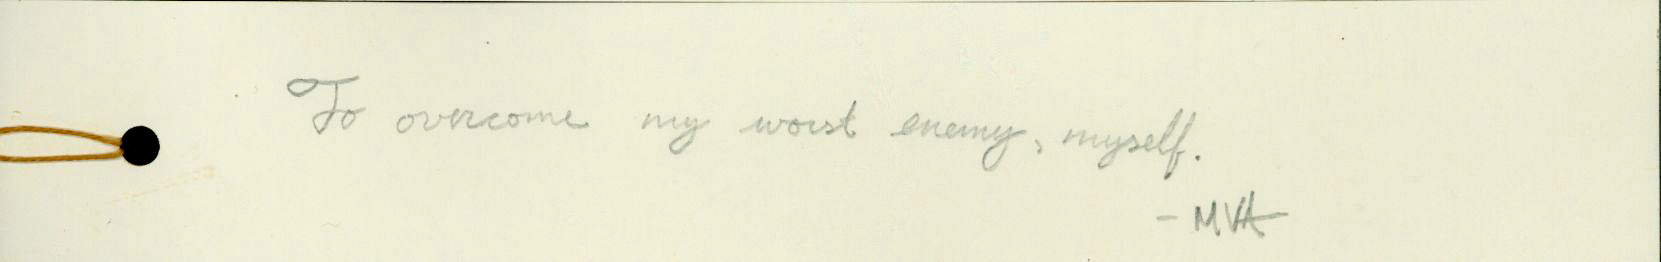 To overcome my worst enemy, myself.
- MVA